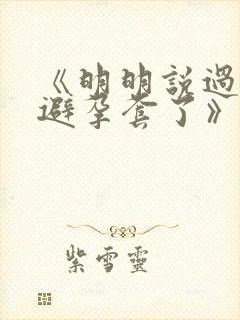 《明明說過
避孕套了》
紫雪靈